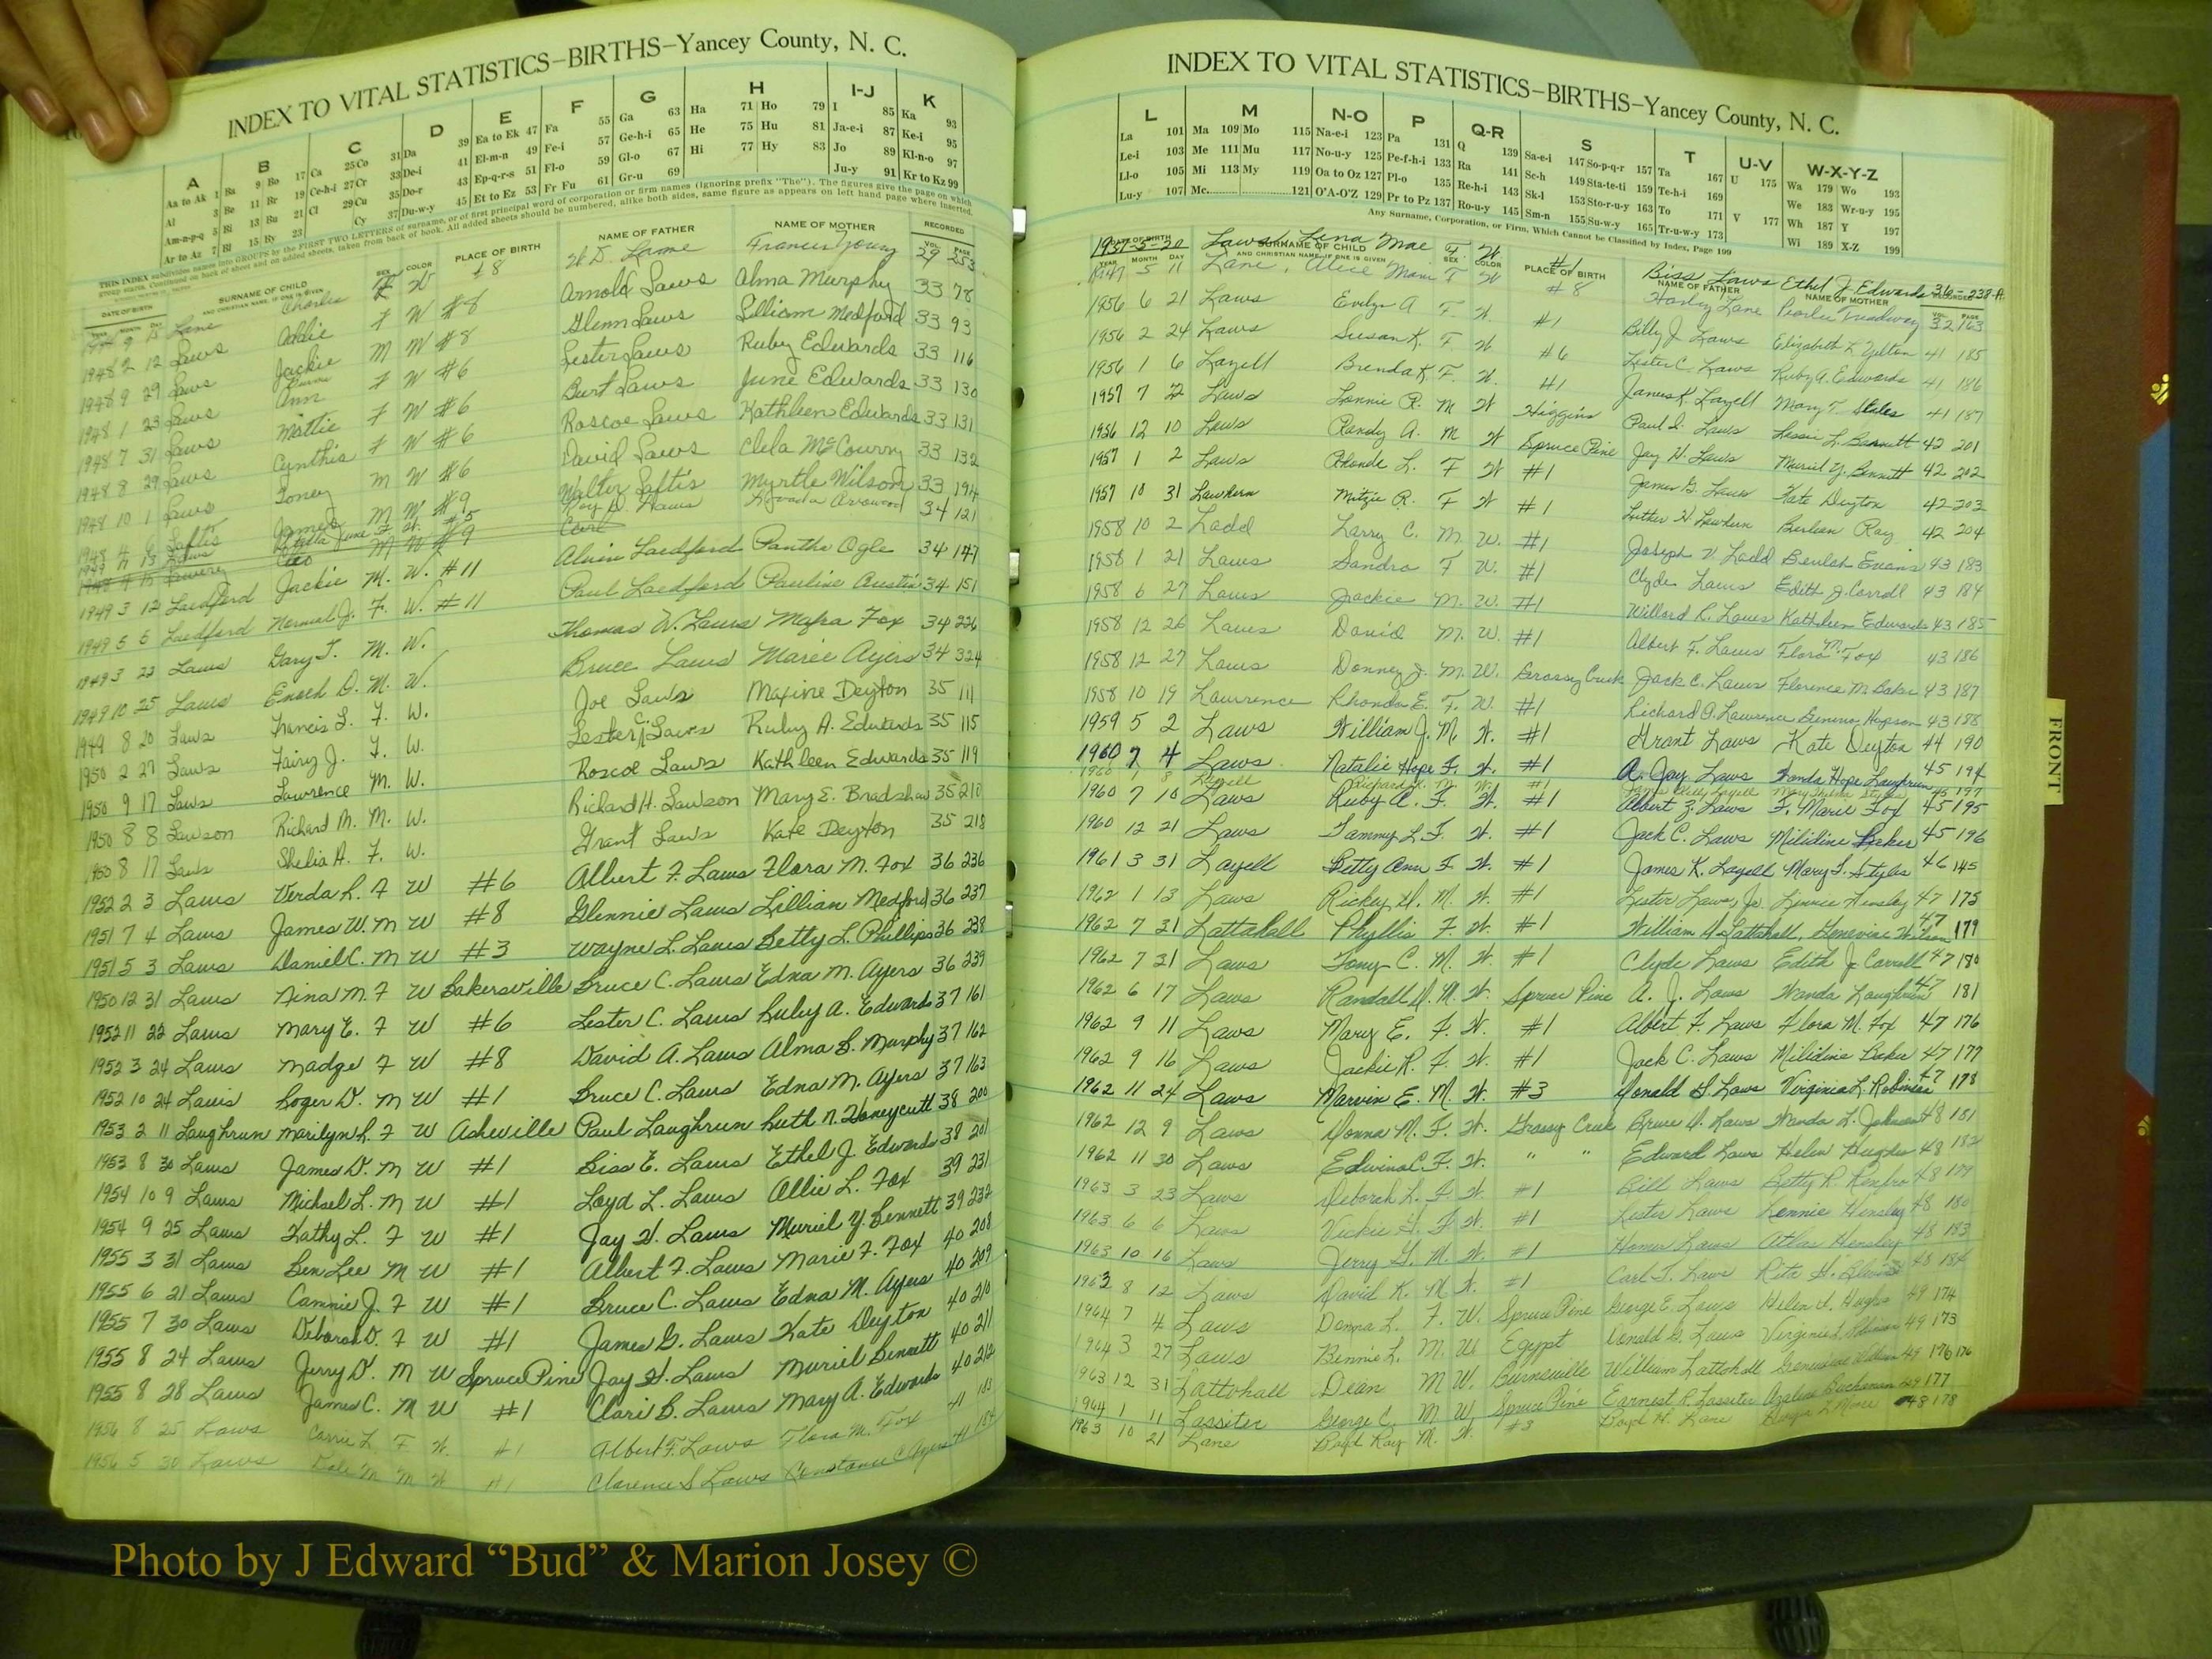 INDEX TO VITAL STATISTICS—BIRTHS—Yancey County, N. C.
A B C D E F G H I-J K
DATE OF BIRTH SURNAME OF CHILD AND CHRISTIAN NAME, IF ONE IS GIVEN SEX COLOR PLACE OF BIRTH NAME OF FATHER NAME OF MOTHER RECORDED VOL. PAGE
Lane Charlie W #8 Francis Young 29 253
1948 2 12 Laws Addie F W #8 Arnold Laws Alma Murphy 33 78
1948 9 29 Laws Jackie M W #8 Glenn Laws Lillian Medford 33 93
1948 1 23 Laws Ann F W #6 Lester Laws Ruby Edwards 33 116
1948 7 31 Laws Mattie F W #6 Burt Laws June Edwards 33 130
1948 8 29 Laws Cynthia F W #6 Roscoe Laws Kathleen Edwards 33 131
1948 10 1 Laws Toney M W #6 David Laws Clela McCourry 33 132
1948 4 6 Laftis James M W #9 Walter Laftis Myrtle Wilson 33 194
Laws June F W #5 Roy D. Laws Arrowood 34 121
1949 3 12 Ledford Jackie M. W. #11 Alvin Ledford Pantha Ogle 34 147
1949 5 6 Ledford Norma J. F. W. #11 Paul Ledford Pauline Austin 34 151
1949 3 22 Laws Gary T. M. W. Thomas W. Laws Mafra Fox 34 226
1949 10 25 Laws Enoch D. M. W. Bruce Laws Marie Ayers 34 324
1949 8 20 Laws Francis L. F. W. Joe Laws Maxine Deyton 35 111
1950 2 27 Laws Fairy J. F. W. Lester C. Laws Ruby A. Edwards 35 115
1950 9 17 Laws Lawrence M. W. Roscoe Laws Kathleen Edwards 35 119
1950 8 8 Lawson Richard M. M. W. Richard H. Lawson Mary E. Bradshaw 35 210
1950 8 17 Laws Shelia A. F. W. Grant Laws Kate Deyton 35 218
1952 2 3 Laws Verda L. F W #6 Albert F. Laws Flora M. Fox 36 236
1951 7 4 Laws James W. M W #8 Glennie Laws Lillian Medford 36 237
1951 5 3 Laws Daniel C. M W #3 Wayne L. Laws Betty L. Phillips 36 238
1950 12 31 Laws Nina M. F W Bakersville Bruce C. Laws Edna M. Ayers 36 239
1952 11 22 Laws Mary E. F W #6 Lester C. Laws Ruby A. Edwards 37 161
1952 3 24 Laws Madge F W #8 David A. Laws Alma B. Murphy 37 162
1952 10 24 Laws Roger D. M W #1 Bruce C. Laws Edna M. Ayers 37 163
1953 2 11 Laughrun Marilyn R. F W Asheville Paul Laughrun Ruth N. Honeycutt 38 200
1953 8 30 Laws James D. M W #1 Biss E. Laws Ethel J. Edwards 38 201
1954 10 9 Laws Michael L. M W #1 Loyd L. Laws Allie L. Fox 39 231
1954 9 25 Laws Kathy L. F W #1 Jay H. Laws Muriel Y. Bennett 39 232
1955 3 31 Laws Ben Lee M W #1 Albert F. Laws Marie F. Fox 40 208
1955 6 21 Laws Cannie J. F W #1 Bruce C. Laws Edna M. Ayers 40 209
1955 7 30 Laws Deborah D. F W #1 James G. Laws Kate Deyton 40 210
1955 8 24 Laws Jerry D. M W Spruce Pine Jay H. Laws Muriel Bennett 40 211
1955 8 28 Laws James C. M W #1 Clari B. Laws Mary A. Edwards 40 212
1956 8 25 Laws Carrie L. F W. #1 Albert F. Laws Flora M. Fox 41 183
1956 5 30 Laws Dale M M W #1 Clarence S Laws Constance C Ayers 41 184
INDEX TO VITAL STATISTICS—BIRTHS—Yancey County, N. C.
L M N-O P Q-R S T U-V W-X-Y-Z
La 101 Ma 109 Mo 115 Na-e-i 123 Pa 131 Q 139 Sa-e-i 147 So-p-q-r 157 Ta 167 U 175 Wa 179 Wo 193
Le-i 103 Me 111 Mu 117 No-u-y 125 Pe-f-h-i 133 Ra 141 Sc-h 149 Sta-te-ti 159 Te-h-i 169 We 183 Wr-u-y 195
Ll-o 105 Mi 113 My 119 Oa to Oz 127 Pl-o 135 Re-h-i 143 Sk-l 153 Sto-r-u-y 163 To 171 V 177 Wh 187 Y 197
Lu-y 107 Mc 121 O'A-O'Z 129 Pr to Pz 137 Ro-u-y 145 Sm-n 155 Su-w-y 165 Tr-u-w-y 173 Wi 189 X-Z 199
Any Surname, Corporation, or Firm, Which Cannot be Classified by Index, Page 199
1951-5-20 Laws Lena Mae F. W. #1 Biss Laws Ethel J. Edwards 36-238-A
DATE OF BIRTH YEAR MONTH DAY SURNAME OF CHILD AND CHRISTIAN NAME, IF ONE IS GIVEN SEX COLOR PLACE OF BIRTH NAME OF FATHER NAME OF MOTHER RECORDED VOL. PAGE
1947 5 11 Lane, Alice Marie F W #8 Harley Lane Treadway 32 163
1956 6 21 Laws Evelyn A F. W. #1 Billy J. Laws Elizabeth L Yelton 41 185
1956 2 24 Laws Susan K. F W #6 Lester C. Laws Ruby A. Edwards 41 186
1956 1 6 Layell Brenda K F. W. #1 James K. Layell Mary T. Stiles 41 187
1957 7 22 Laws Lonnie R. M W Higgins Paul D. Laws Lessie L. Bennett 42 201
1956 12 10 Laws Randy A. M W Spruce Pine Jay H. Laws Muriel Y. Bennett 42 202
1957 1 2 Laws Rhonda L. F W #1 James G. Laws Kate Deyton 42 203
1957 10 31 Lawhern Mitzie R. F W #1 Luther H Lawhern Burlian Ray 42 204
1958 10 2 Ladd Larry C. M. W. #1 Joseph V. Ladd Beulah Evans 43 183
1958 1 21 Laws Sandra F W. #1 Clyde Laws Edith J. Carroll 43 184
1958 6 27 Laws Jackie M. W. #1 Willard R. Laws Kathleen Edwards 43 185
1958 12 26 Laws David M. W. #1 Albert F. Laws Flora M. Fox 43 186
1958 12 27 Laws Donney J. M. W. Grassy Creek Jack C. Laws Florence M. Baker 43 187
1958 10 19 Lawrence Rhonda E. F. W. #1 Richard G. Lawrence Hopson 43 188
1959 5 2 Laws William J. M. W. #1 Grant Laws Kate Deyton 44 190
1960 7 4 Laws Natalie Hope F. W. #1 A. Jay Laws Wanda Hope Laughrun 45 194
1960 1 8 Layell Richard M. W. #1 45 197
1960 7 10 Laws Ruby A. F. W. #1 Albert Z. Laws F. Marie Fox 45 195
1960 12 21 Laws Tammy L. F. W. #1 Jack C. Laws Milidine Baker 45 196
1961 3 31 Layell Betty Ann F. W. #1 James K. Layell Mary T. Styles 46 145
1962 1 13 Laws Rickey D. M. W. #1 Lester Laws, Jr. Linnie Hensley 47 175
1962 7 31 Lattahall Phyllis F. W. #1 William D. Lattahall, Genevine Wilson 47 179
1962 7 21 Laws Tony C. M. W. #1 Clyde Laws Edith J Carroll 47 180
1962 6 17 Laws Randall D. M. W. Spruce Pine A. J. Laws Wanda Laughrun 47 181
1962 9 11 Laws Mary E. F. W. #1 Albert F. Laws Flora M. Fox 47 176
1962 9 16 Laws Jackie R. F. W. #1 Jack C. Laws Milidine Baker 47 177
1962 11 24 Laws Marvin E. M. W. #3 Donald G. Laws Virginia L. Robinson 47 178
1962 12 9 Laws Donna M. F. W. Grassy Creek Bruce D. Laws Wanda L. Johnson 48 181
1962 11 30 Laws Edwina C. F. W. " " Edward Laws Helen Hughes 48 182
1963 3 23 Laws Deborah L. F W. #1 Bill Laws Betty R. Renfro 48 179
1963 6 6 Laws Vickie F W. #1 Lester Laws Lennie Hensley 48 180
1963 10 16 Laws Jerry G. M. W. #1 Homer Laws Atlas Hensley 48 183
1963 8 12 Laws David K. M W. #1 Carl T. Laws Rita 48 184
1964 7 4 Laws Donna L. F. W. Spruce Pine George E. Laws Helen Hughes 49 174
1964 3 27 Laws Bennie L. M. W Egypt Donald G. Laws Virginia L. Robinson 49 173
1963 12 31 Lattahall Dean M W. Burnsville William Lattahall Genevieve Wilson 49 176
1964 1 11 Lassiter George C. M W. Spruce Pine Earnest R. Lassiter Azalene Buchanan 49 177
1963 10 21 Lane Boyd Ray M. W. #3 Boyd H. Lane 48 178
FRONT
Photo by J Edward “Bud” & Marion Josey ©